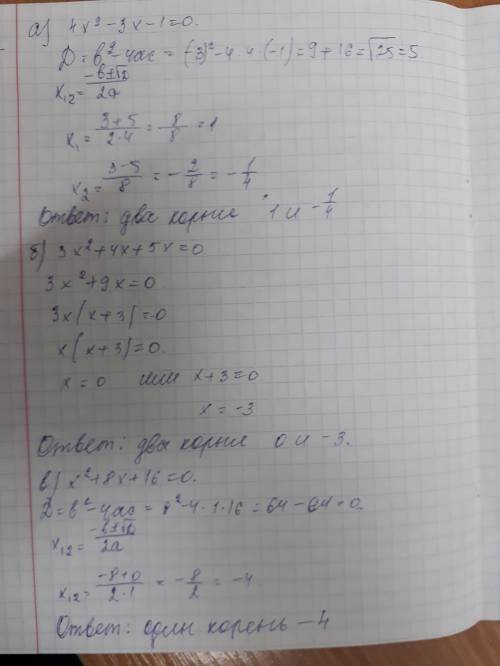 а) 4x² - 3x - 1 = 0.
D = b² - 4ac = (-3)² - 4·4·(-1) = 9 + 16 = √25 = 5
x₁₂ = (-b ± √D) / 2a
x₁ = (3 + 5) / (2·4) = 8/8 = 1
x₂ = (3 - 5) / 8 = -2/8 = -1/4
Ответ: два корня 1 и -1/4
б) 3x² + 4x + 5x = 0
3x² + 9x = 0
3x(x + 3) = 0
x(x + 3) = 0.
x = 0 или x + 3 = 0
x = -3
Ответ: два корня 0 и -3.
в) x² + 8x + 16 = 0.
D = b² - 4ac = 8² - 4·1·16 = 64 - 64 = 0.
x₁₂ = (-b ± √D) / 2a
x₁₂ = (-8 + 0) / (2·1) = -8/2 = -4
Ответ: один корень -4